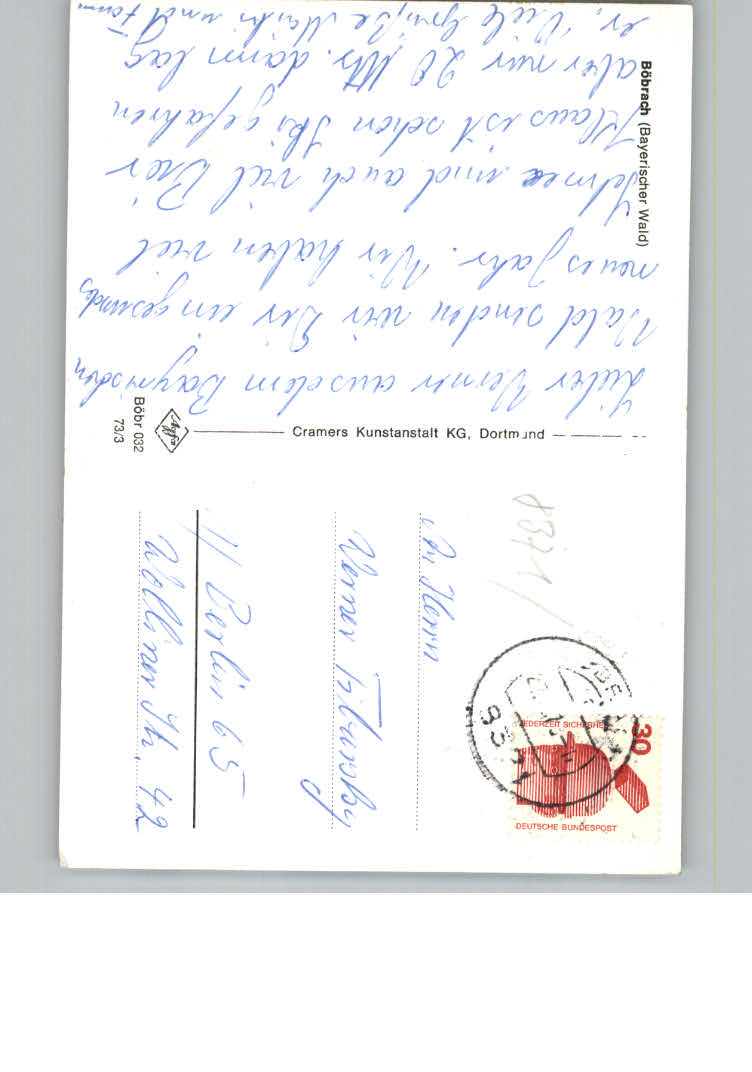 Lieber Werner aus dem Bayrischen
Wald senden wir Dir ein gesundes
neues Jahr. Wir haben viel
Schnee und auch viel Bier
Klaus ist schon Ski gefahren
aber nur 20 Mtr. dann lag
er. Viele Grüße und Fam
Böbrach (Bayerischer Wald)
Cramers Kunstanstalt KG, Dortmund
Agfa
Böbr 032
73/3
8371
30
JEDERZEIT SICHERHEIT
DEUTSCHE BUNDESPOST
8371
An Herrn
Werner
1/ Berlin 65
Wolliner Str. 42